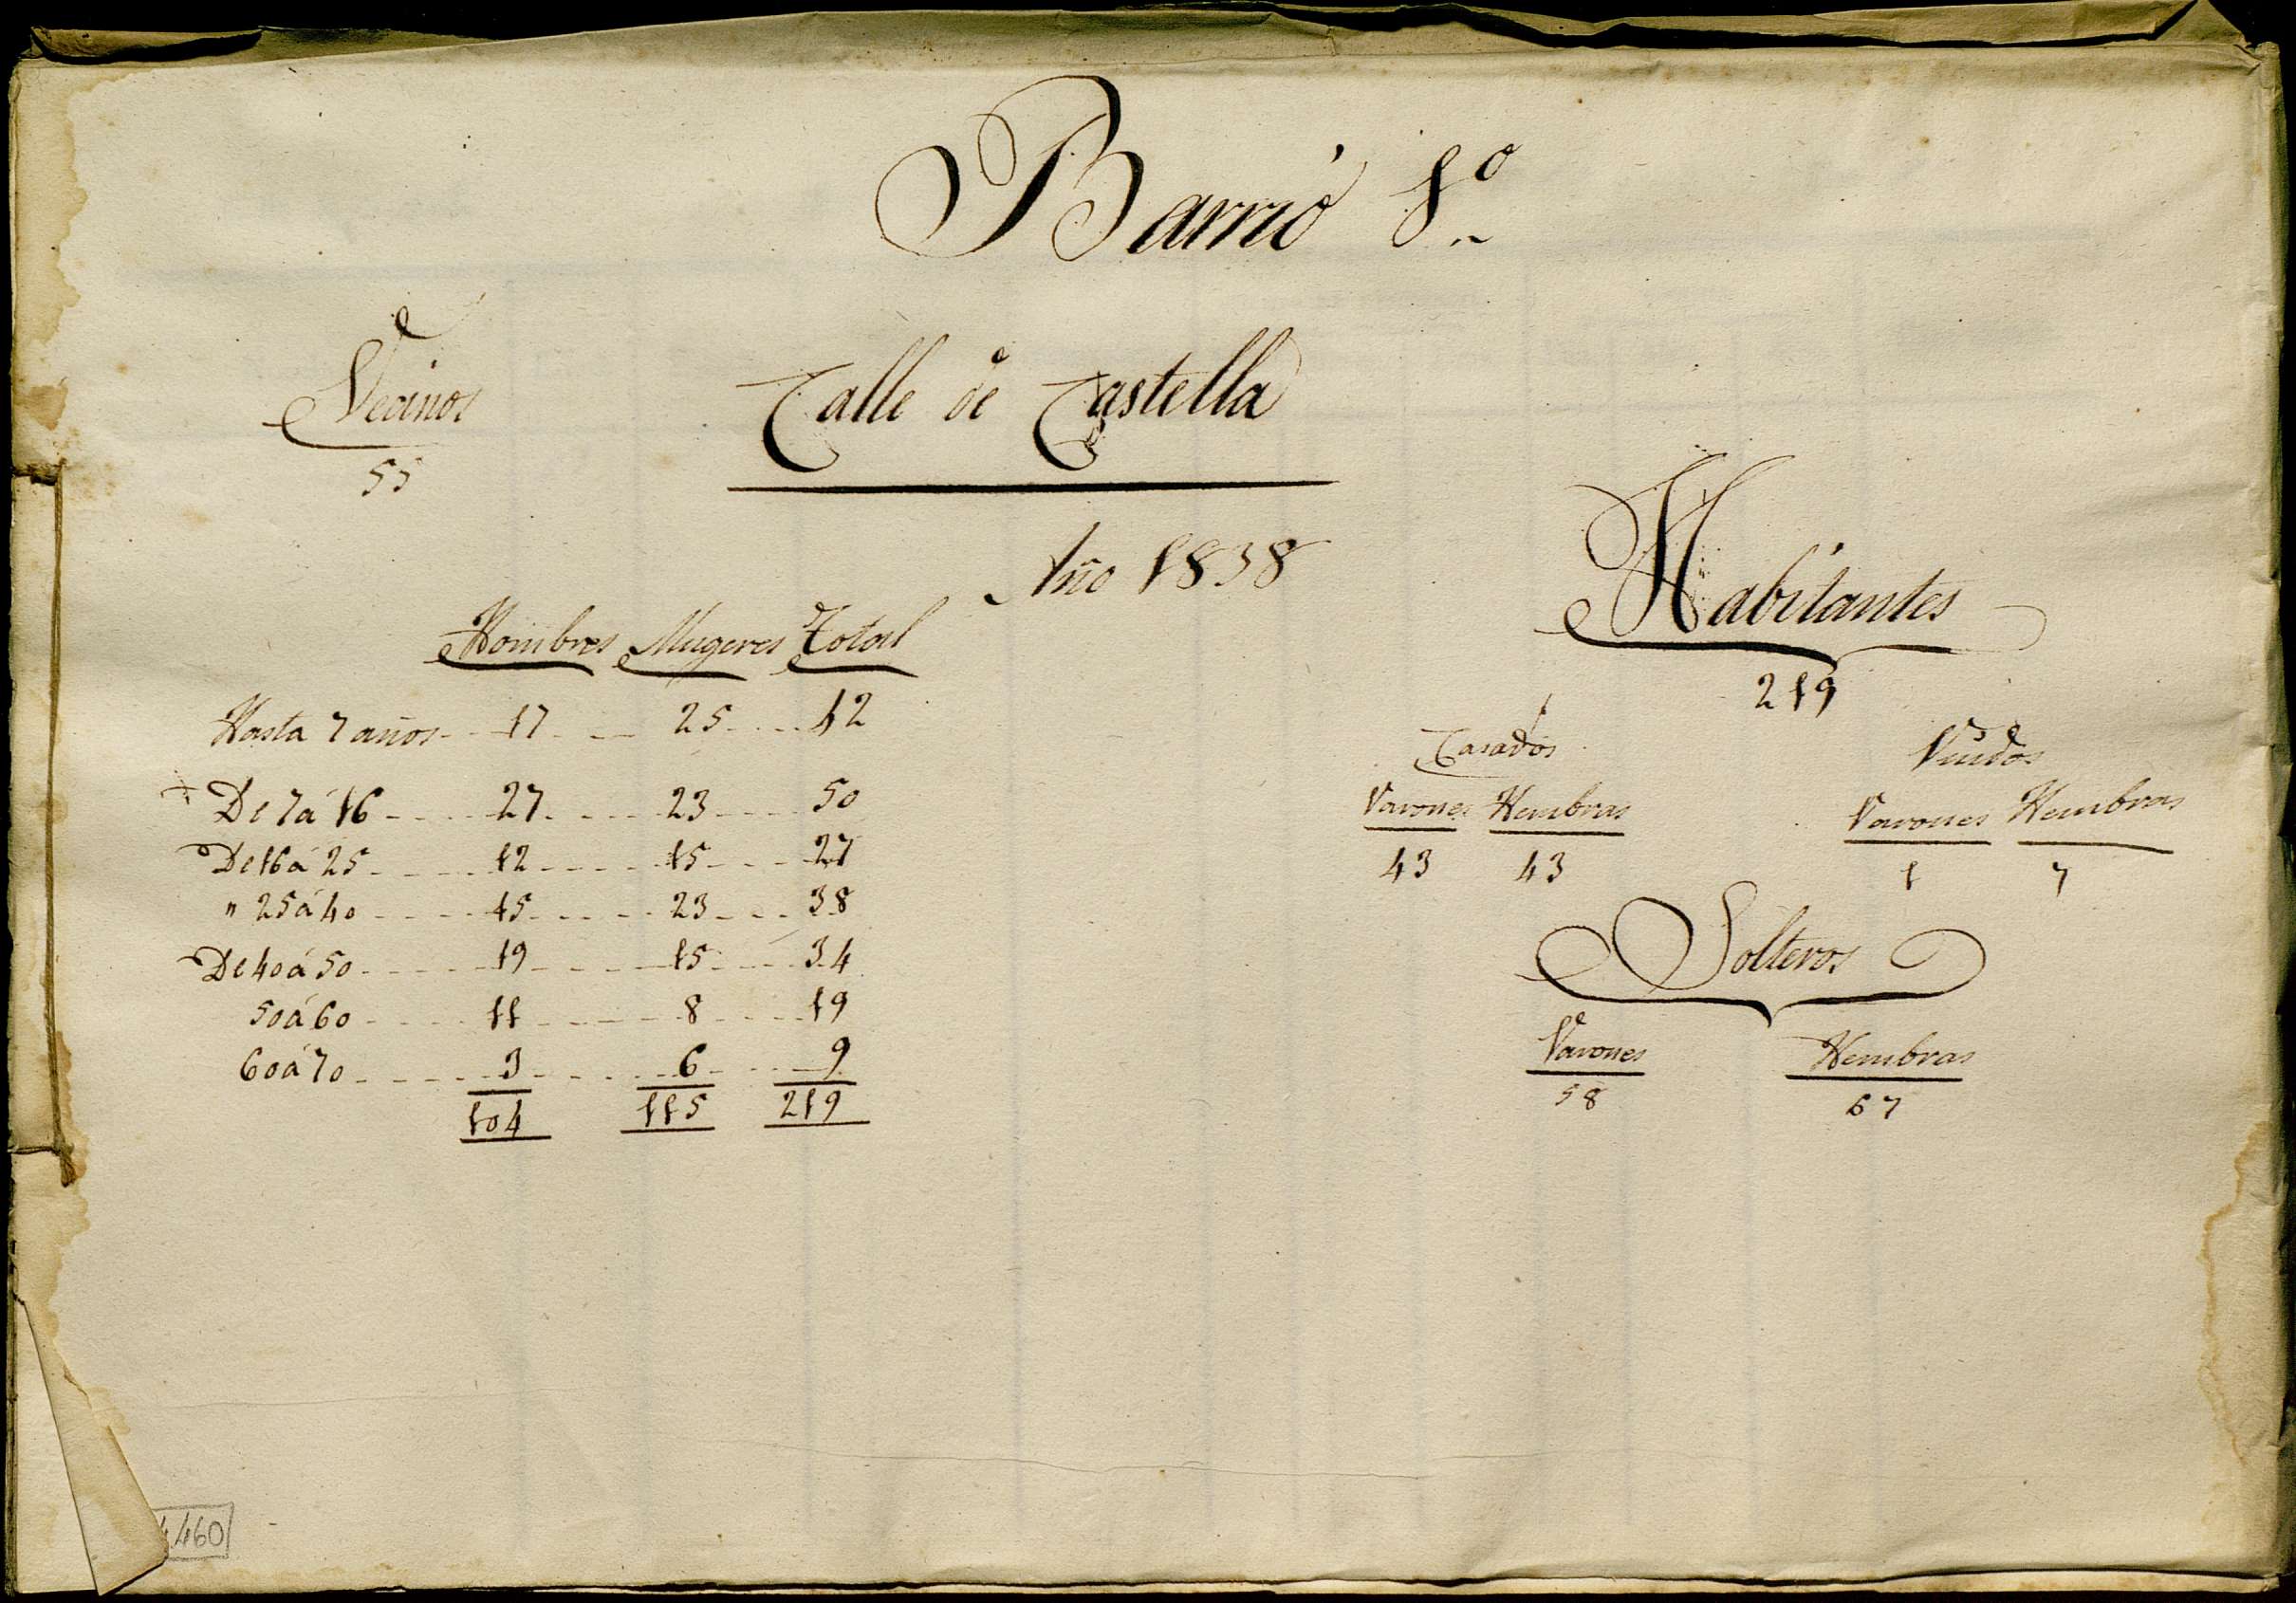 Barrio 1º
Vecinos
55
Calle de Castella
Año 1838
Hombres Mugeres Total
Hasta 7 años 17 25 42
De 7 á 16 27 23 50
De 16 á 25 12 15 27
" 25 á 40 15 23 38
De 40 á 50 19 15 34
50 á 60 11 8 19
60 á 70 3 6 9
104 115 219
Habitantes
219
Casados Viudos
Varones Hembras Varones Hembras
43 43 1 7
Solteros
Varones Hembras
58 67
460